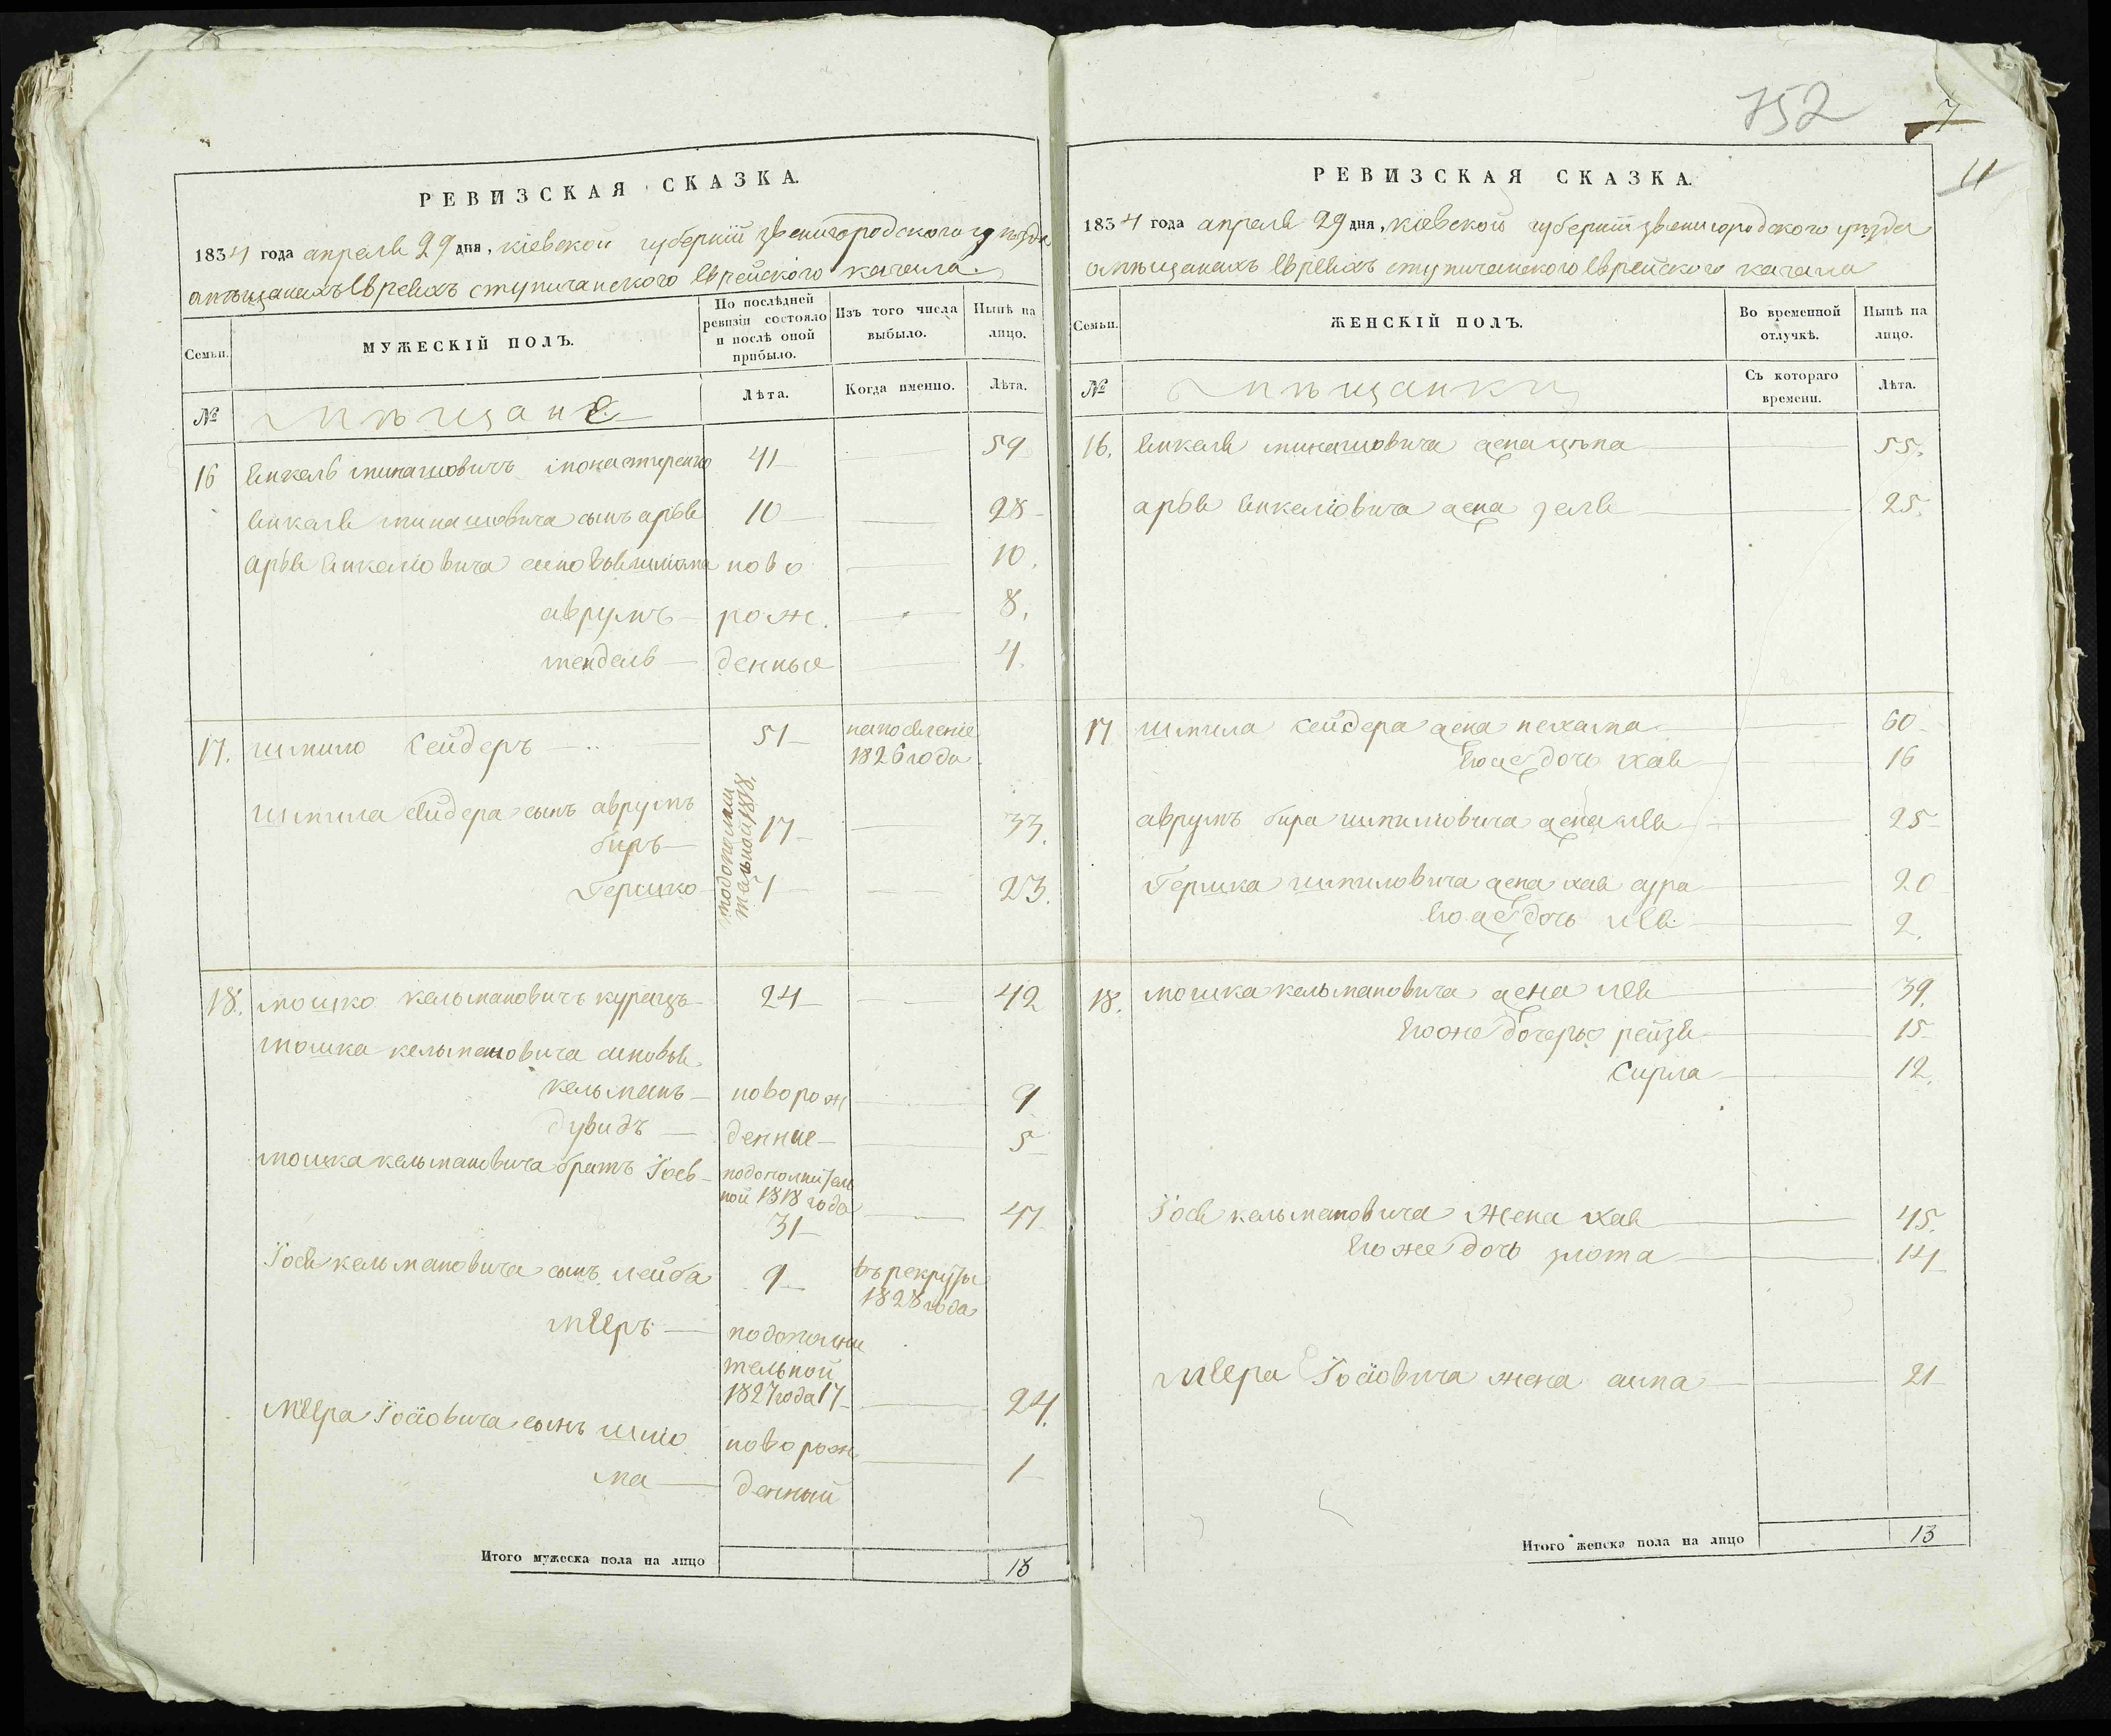 РЕВИЗСКАЯ СКАЗКА.
1834 года апреля 29 дня, кіевской губерніи звенигородского уѣзда
омѣщанахъ Евреяхъ ступичанского Еврейского кагала.
Семьи. МУЖЕСКІЙ ПОЛЪ. По послѣдней ревизіи состояло и послѣ оной прибыло. Изъ того числа выбыло. Нынѣ на лицо.
№ мѣщане Лѣта. Когда именно. Лѣта.
16 Янкель 41 59
сынъ арья 10 28
арья сыновья ново 10.
аврумъ рож. 8.
мендель денные 4.
17. шмило Сейдеръ 51 напоселеніе 1826 года
шмила Сейдера сынъ аврумъ
беръ 17 33.
Гершко подополни тельной 1818. 1 23.
18. мошко кельмановичъ 24 42
мошка кельмановича сыновья
кельманъ новорож 9
дувидъ денные 5
мошка кельмановича братъ Іось подополнител
ной 1818 года
31 47
Іося кельмановича сынъ лейба 9 въ рекруты
1828 года
мееръ подополни
тельной
1827 года 17 24.
меера Іосіовича сынъ шлио новорож
ма денный 1
Итого мужеска пола на лицо 13
752
7
11
РЕВИЗСКАЯ СКАЗКА.
1834 года апреля 29 дня, кіевской губерніи звенигородского уѣзда
омѣщанахъ Евреяхъ ступичанского Еврейского кагала
Семьи. ЖЕНСКІЙ ПОЛЪ. Во временной отлучкѣ. Нынѣ на лицо.
№ мѣщанки Съ котораго времени. Лѣта.
16. Янкеля жена 55.
арья Янкеліовича жена 25.
17 шмила Сейдера жена нехама 60
Его же дочь хая 16
аврумъ бера шмиліовича жена лея 25
Гершка шмиловича жена хая сура 20
Его же дочь лея 2.
18. мошка кельмановича жена лея 39.
Его же дочеры рейзя 15
Сирла 12.
Іося кельмановича жена хая 45.
Его же дочь злота 14
меера Іосіовича жена 21
Итого женска пола на лицо 13